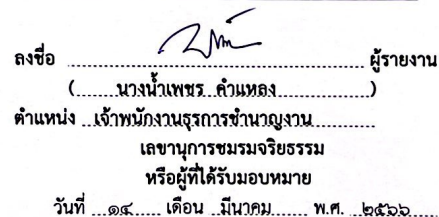 ลงชื่อ ผู้รายงาน
(นางน้ำเพชร คำแหลง)
ตำแหน่ง เจ้าพนักงานธุรการชำนาญงาน
เลขานุการชมรมจริยธรรม
หรือผู้ที่ได้รับมอบหมาย
วันที่ ๑๔ เดือน มีนาคม พ.ศ. ๒๕๖๖